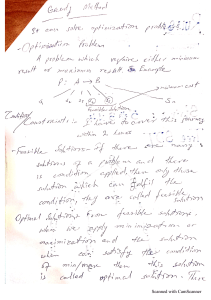 Greedy Method
So are solve optimization problems
- Optimization Problem
A problem which requires either minimum
result or maximum result. Example
P: A → B
Constraint: have to cover this journey
within 2 hours
- Feasible Solution: if there are many
solutions of a problem and there
is condition applied, then only those
solution which can fulfil the
condition, they are called feasible solution
Optimal Solution: from feasible solutions,
when we apply minimization or
maximization and the solution
when satisfy the condition
of min/max then this solution
is called optimal solution. There
Scanned with CamScanner